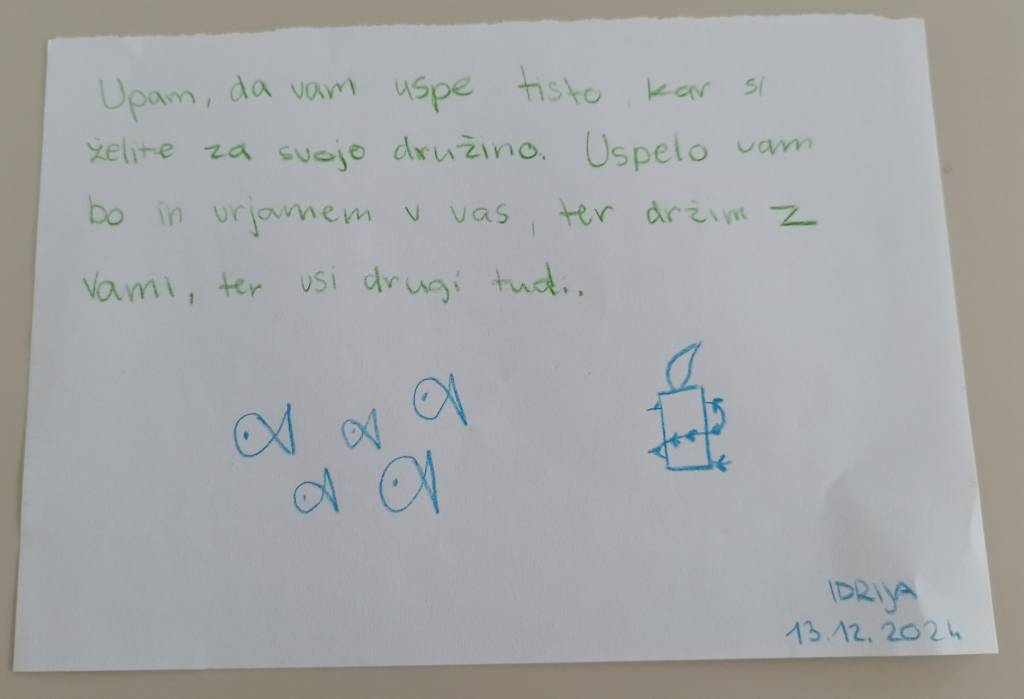 Upam, da vam uspe tisto, kar si
želite za svojo družino. Uspelo vam
bo in vrjamem v vas, ter držim z
vami, ter vsi drugi tudi.
IDRIJA
13.12.2024